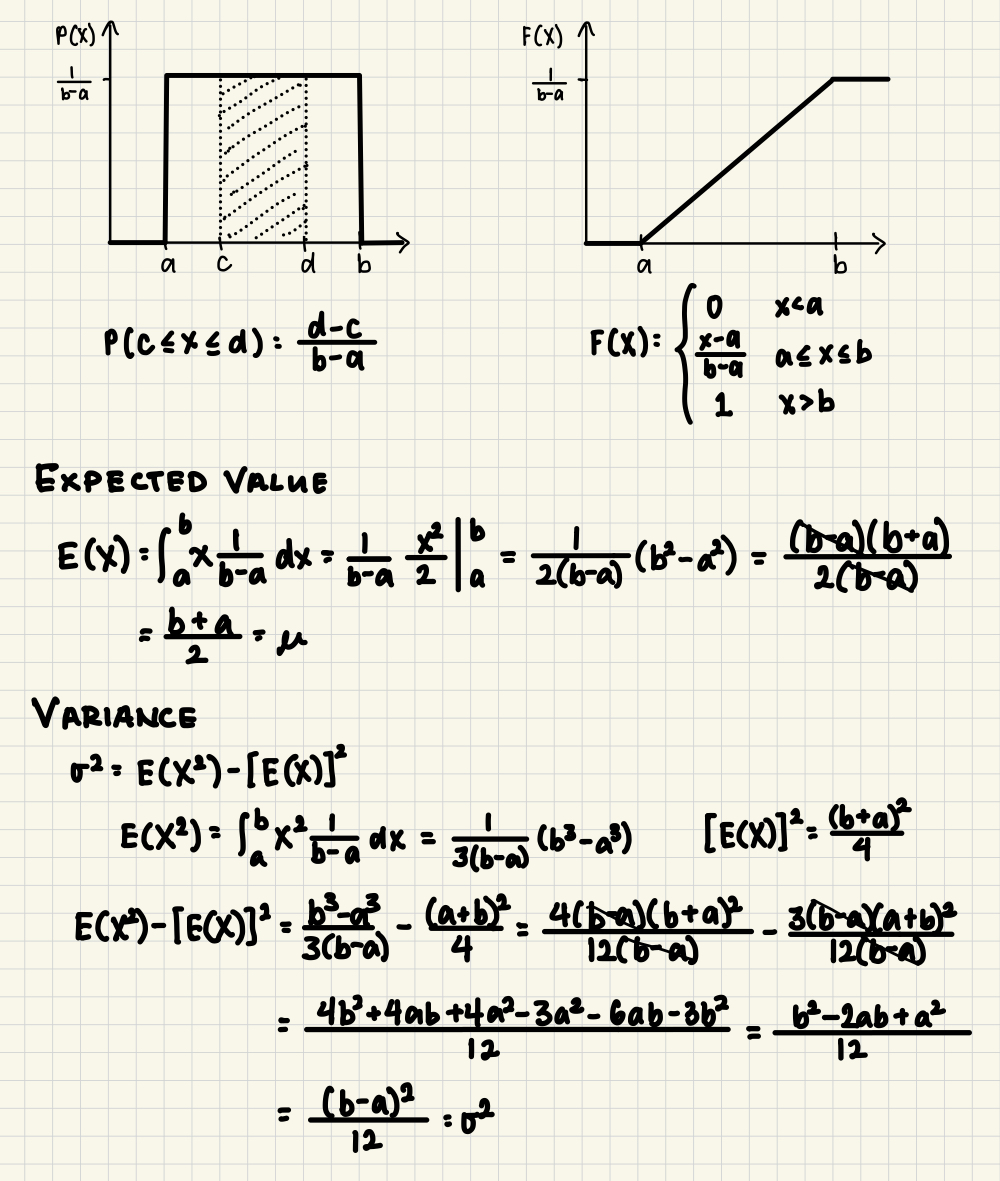 P(X)
1/(b-a)
a c d b
F(X)
1/(b-a)
a b
P(c ≤ x ≤ d) = (d-c)/(b-a)
F(X) = { 0 x<a
(x-a)/(b-a) a ≤ x ≤ b
1 x>b
EXPECTED VALUE
E(X) = ∫_a^b x 1/(b-a) dx = 1/(b-a) x²/2 |_a^b = 1/(2(b-a)) (b²-a²) = (b-a)(b+a)/(2(b-a))
= (b+a)/2 = μ
VARIANCE
σ² = E(X²) - [E(X)]²
E(X²) = ∫_a^b x² 1/(b-a) dx = 1/(3(b-a)) (b³-a³) [E(X)]² = (b+a)²/4
E(X²) - [E(X)]² = (b³-a³)/(3(b-a)) - (a+b)²/4 = 4(b-a)(b+a)²/(12(b-a)) - 3(b-a)(a+b)²/(12(b-a))
= (4b²+4ab+4a²-3a²-6ab-3b²)/12 = (b²-2ab+a²)/12
= (b-a)²/12 = σ²